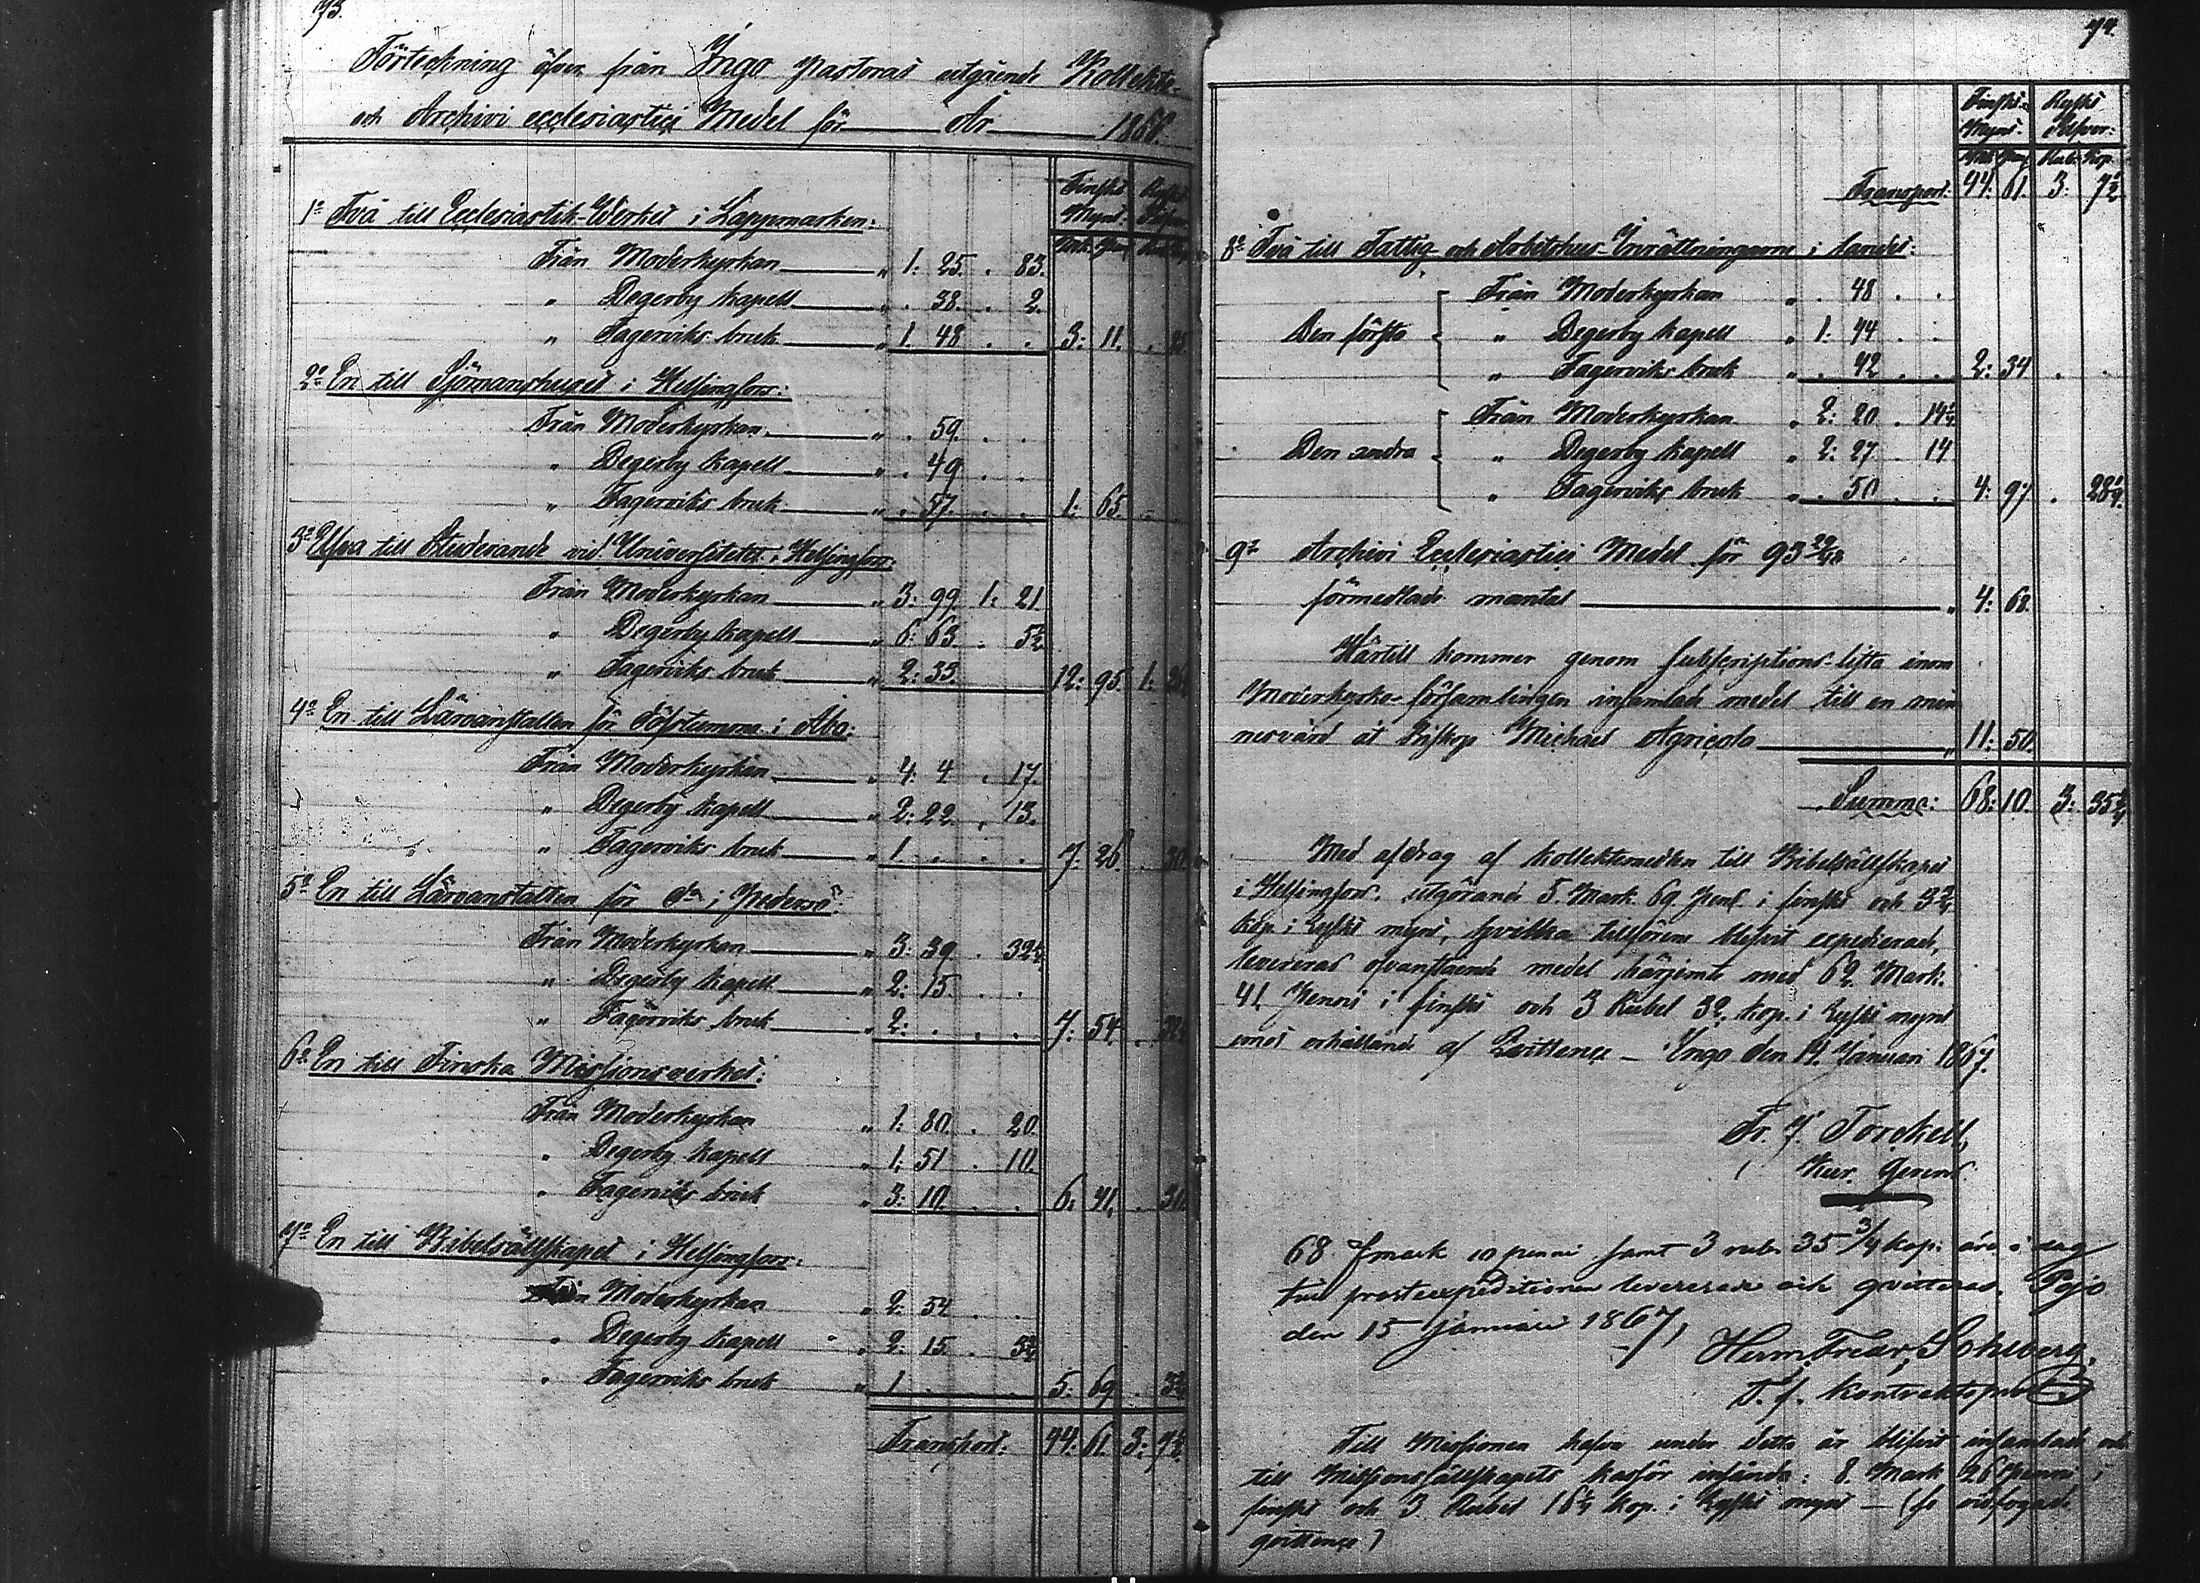 73.
Förteckning öfver från Ingo Pastorat utgående Kollekt-
och Archivi ecclesiastici Medel för År 1866.
Finskt Mynt. Ryskt Silfver
Mk Pen
1o Två till Ecclesiastik-Verket i Lappmarken:
Från Moderkyrkan " 1: 25. . 83.
" Degerby kapell " . 38. . 2.
" Fagerviks bruk " 1. 48 . . 3: 11. . 85.
2o En till Sjömanshuset i Helsingfors:
Från Moderkyrkan " . 59. . .
" Degerby kapell " . 49 . . .
" Fagerviks bruk " . 57. . . 1: 65. . .
3o Tvåa till Studerande vid Universitetet i Helsingfors:
Från Moderkyrkan " 3: 99. 1: 21.
" Degerby kapell " 6: 63. . 5½
" Fagerviks bruk " 2: 33. 12: 95. 1: 26½
4o En till Läroanstalten för döfstumma i Åbo:
Från Moderkyrkan " 4: 4 . 17.
" Degerby kapell " 2: 22. . 13.
" Fagerviks bruk " 1 . . . 7. 26. . 30.
5o En till Läroanstalten för do i Pedersö:
Från Moderkyrkan " 3: 39. . 32½
" Degerby kapell " 2: 15. . .
" Fagerviks bruk " 2: . . . 7: 54. . 32½
6o En till Finska Missionsverket:
Från Moderkyrkan " 1: 80. . 20.
" Degerby kapell " 1: 51 . 10.
" Fagerviks bruk " 3: 10. . . 6: 41. . 30.
7o En till Bibelsällskapet i Helsingfors:
Från Moderkyrkan " 2: 54. . .
" Degerby kapell " 2: 15. . 3¾
" Fagerviks bruk " 1 . . . 5: 69. . 3¾
Transport: 44: 61. 3: 7½
74.
Finskt Mynt. Ryskt Silfver:
Mk Pen Rub. Kop.
Transport: 44: 61. 3: 7½
8o Två till Fattig- och Arbetshus-Inrättningarne i landet:
Från Moderkyrkan " . 48 . .
Den första " Degerby kapell " 1: 44 . .
" Fagerviks bruk " . 42 . . 2: 34 . .
Från Moderkyrkan " 2: 20 . 14¼
Den andra " Degerby kapell " 2: 27 . 14
" Fagerviks bruk " . 50 . . 4: 97 . 28¼
9o Archivi Ecclesiastici Medel för 93 29/48
förmedlade mantal " 4: 68.
Härtill kommer genom subscriptions-lista inom
Moderkyrko-församlingen insamlade medel till en min
nesvård åt Biskop Michael Agricola " 11: 50.
Summa: 68: 10. 3: 35¾
Med afdrag af kollektmedlen till Bibelsällskapet
i Helsingfors, utgörande 5. Mark. 69. Penni i finskt och 3¾
kop. i Ryskt mynt, hvilka tillförene blifvit expedierade,
levereras ofvanstående medel härjemte med 62. Mark.
41. Penni i finskt och 3 Rubel 32. kop. i Ryskt mynt
emot erhållande af Qvittence – Ingo den 14. Januari 1867.
Fr. J. Torckell,
Kur. Gerens
68 Fmark 10 penni samt 3 rub. 35 3/4 kop. äro i dag
till prostexpeditionen levererade och qvitteras. Pojo
den 15 januari 1867,
Herm. Fredr. Sohlberg.
T. f. Kontraktsprost
Till Missionen hafva under detta år blifvit insamlade och
till Missionssällskapets kassör insända: 8. Mark 26 penni i
finskt och 3 Rubel 16¼ kop. i Ryskt mynt – (se vidfogade
qvittence)